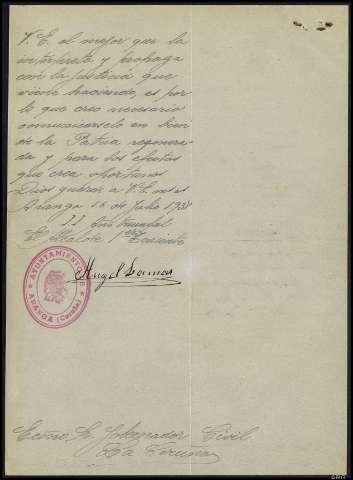 V. E. el mejor que la
interpreta y prohaga
con la justicia que
viene haciendo, es por
lo que creo necesario
comunicarselo en bien
de la Patria regenera-
da y para los efectos
que crea oportunos
Dios guarde a V. E. m. a.
Aranga 16 de Julio 193
II Año triunfal
El Alcalde 1er Teniente
Angel
AYUNTAMIENTO DE
ARANGA (Coruña)
Excmo. Sr. Gobernador Civil
La Coruña